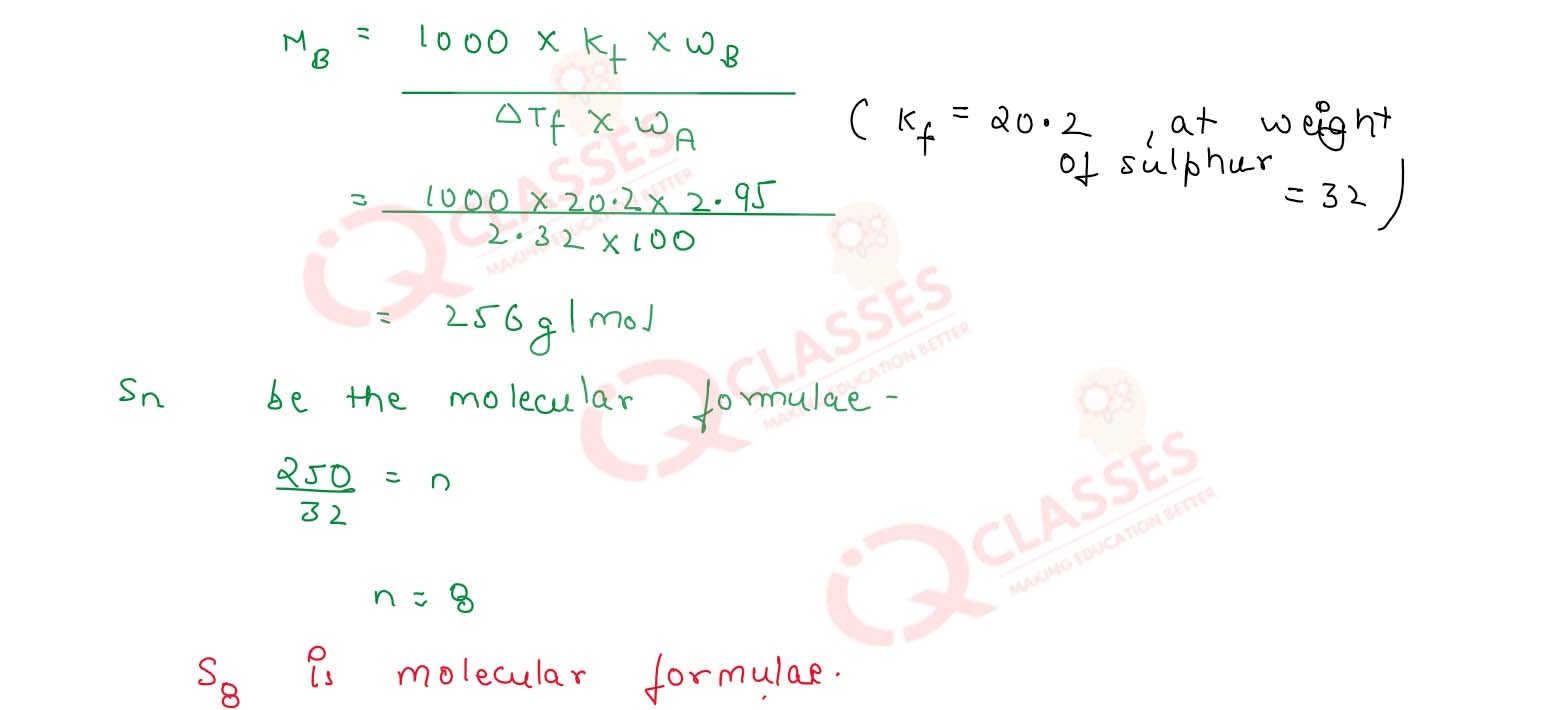 M_B = 1000 × K_f × ω_B
ΔTf × ω_A
( K_f = 20.2 , at weight
of sulphur
= 32 )
= 1000 × 20.2 × 2.95
2.32 × 100
= 256 g/mol
Sn be the molecular formulae -
250 = n
32
n = 8
S_8 is molecular formulae.
IQ CLASSES
MAKING EDUCATION BETTER
IQ CLASSES
MAKING EDUCATION BETTER
IQ CLASSES
MAKING EDUCATION BETTER